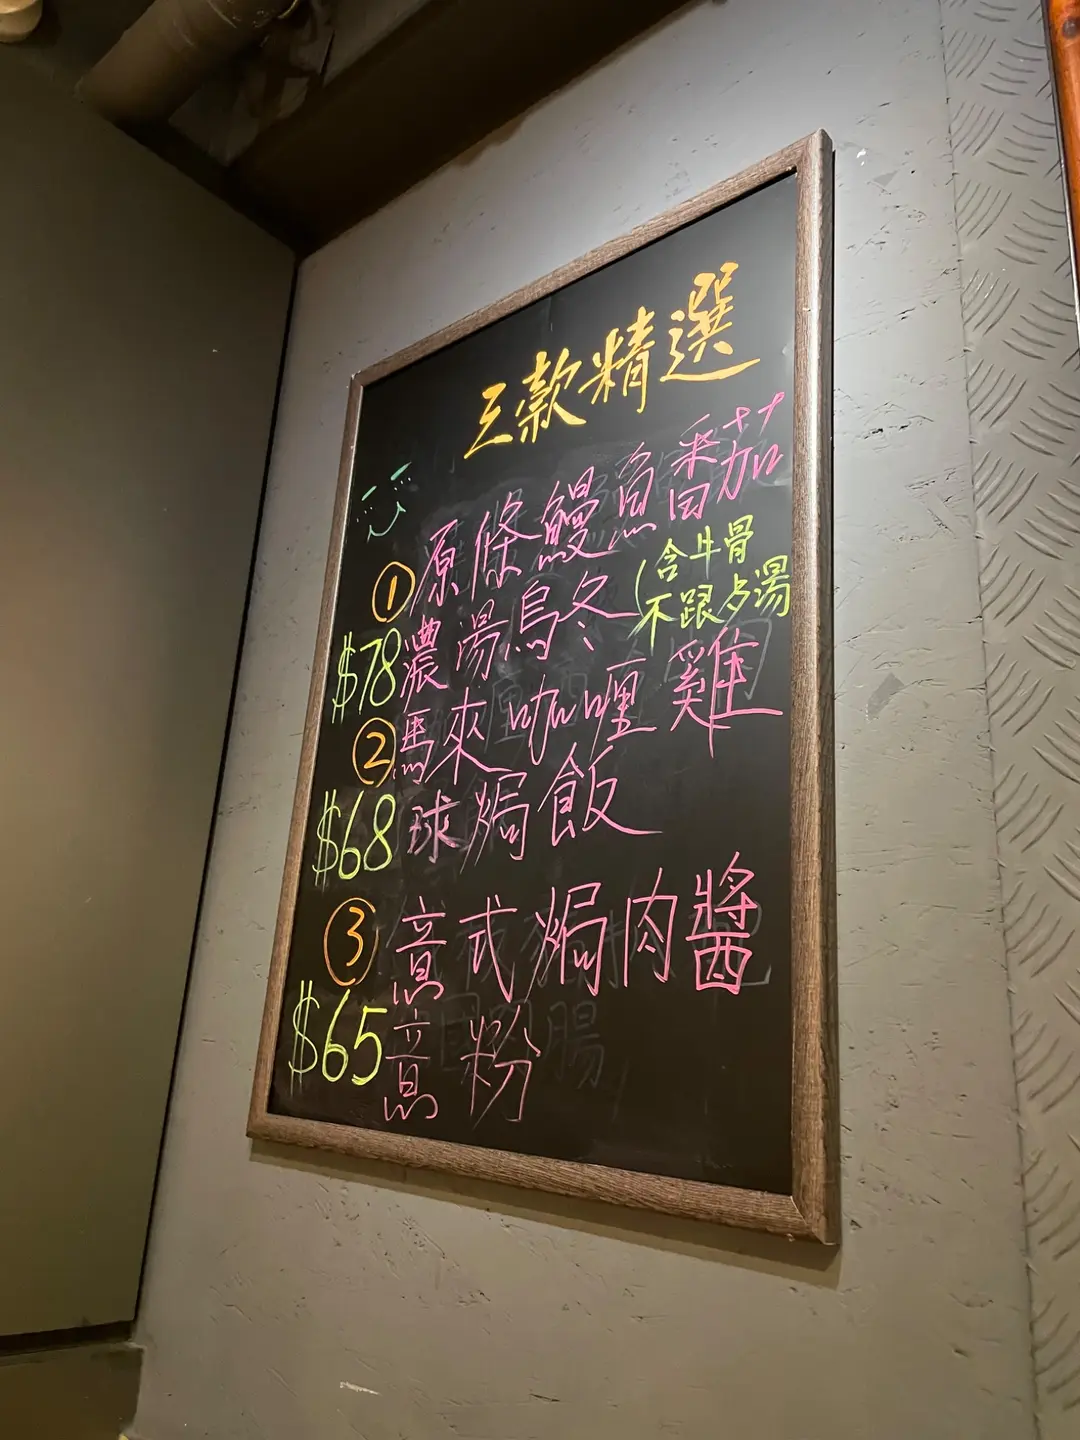 三款精選
① 原條鰻魚番茄
$78 濃湯烏冬 (含牛骨
不跟歺湯
② 馬來咖喱雞
$68 球焗飯
③ 意式焗肉醬
$65 意粉